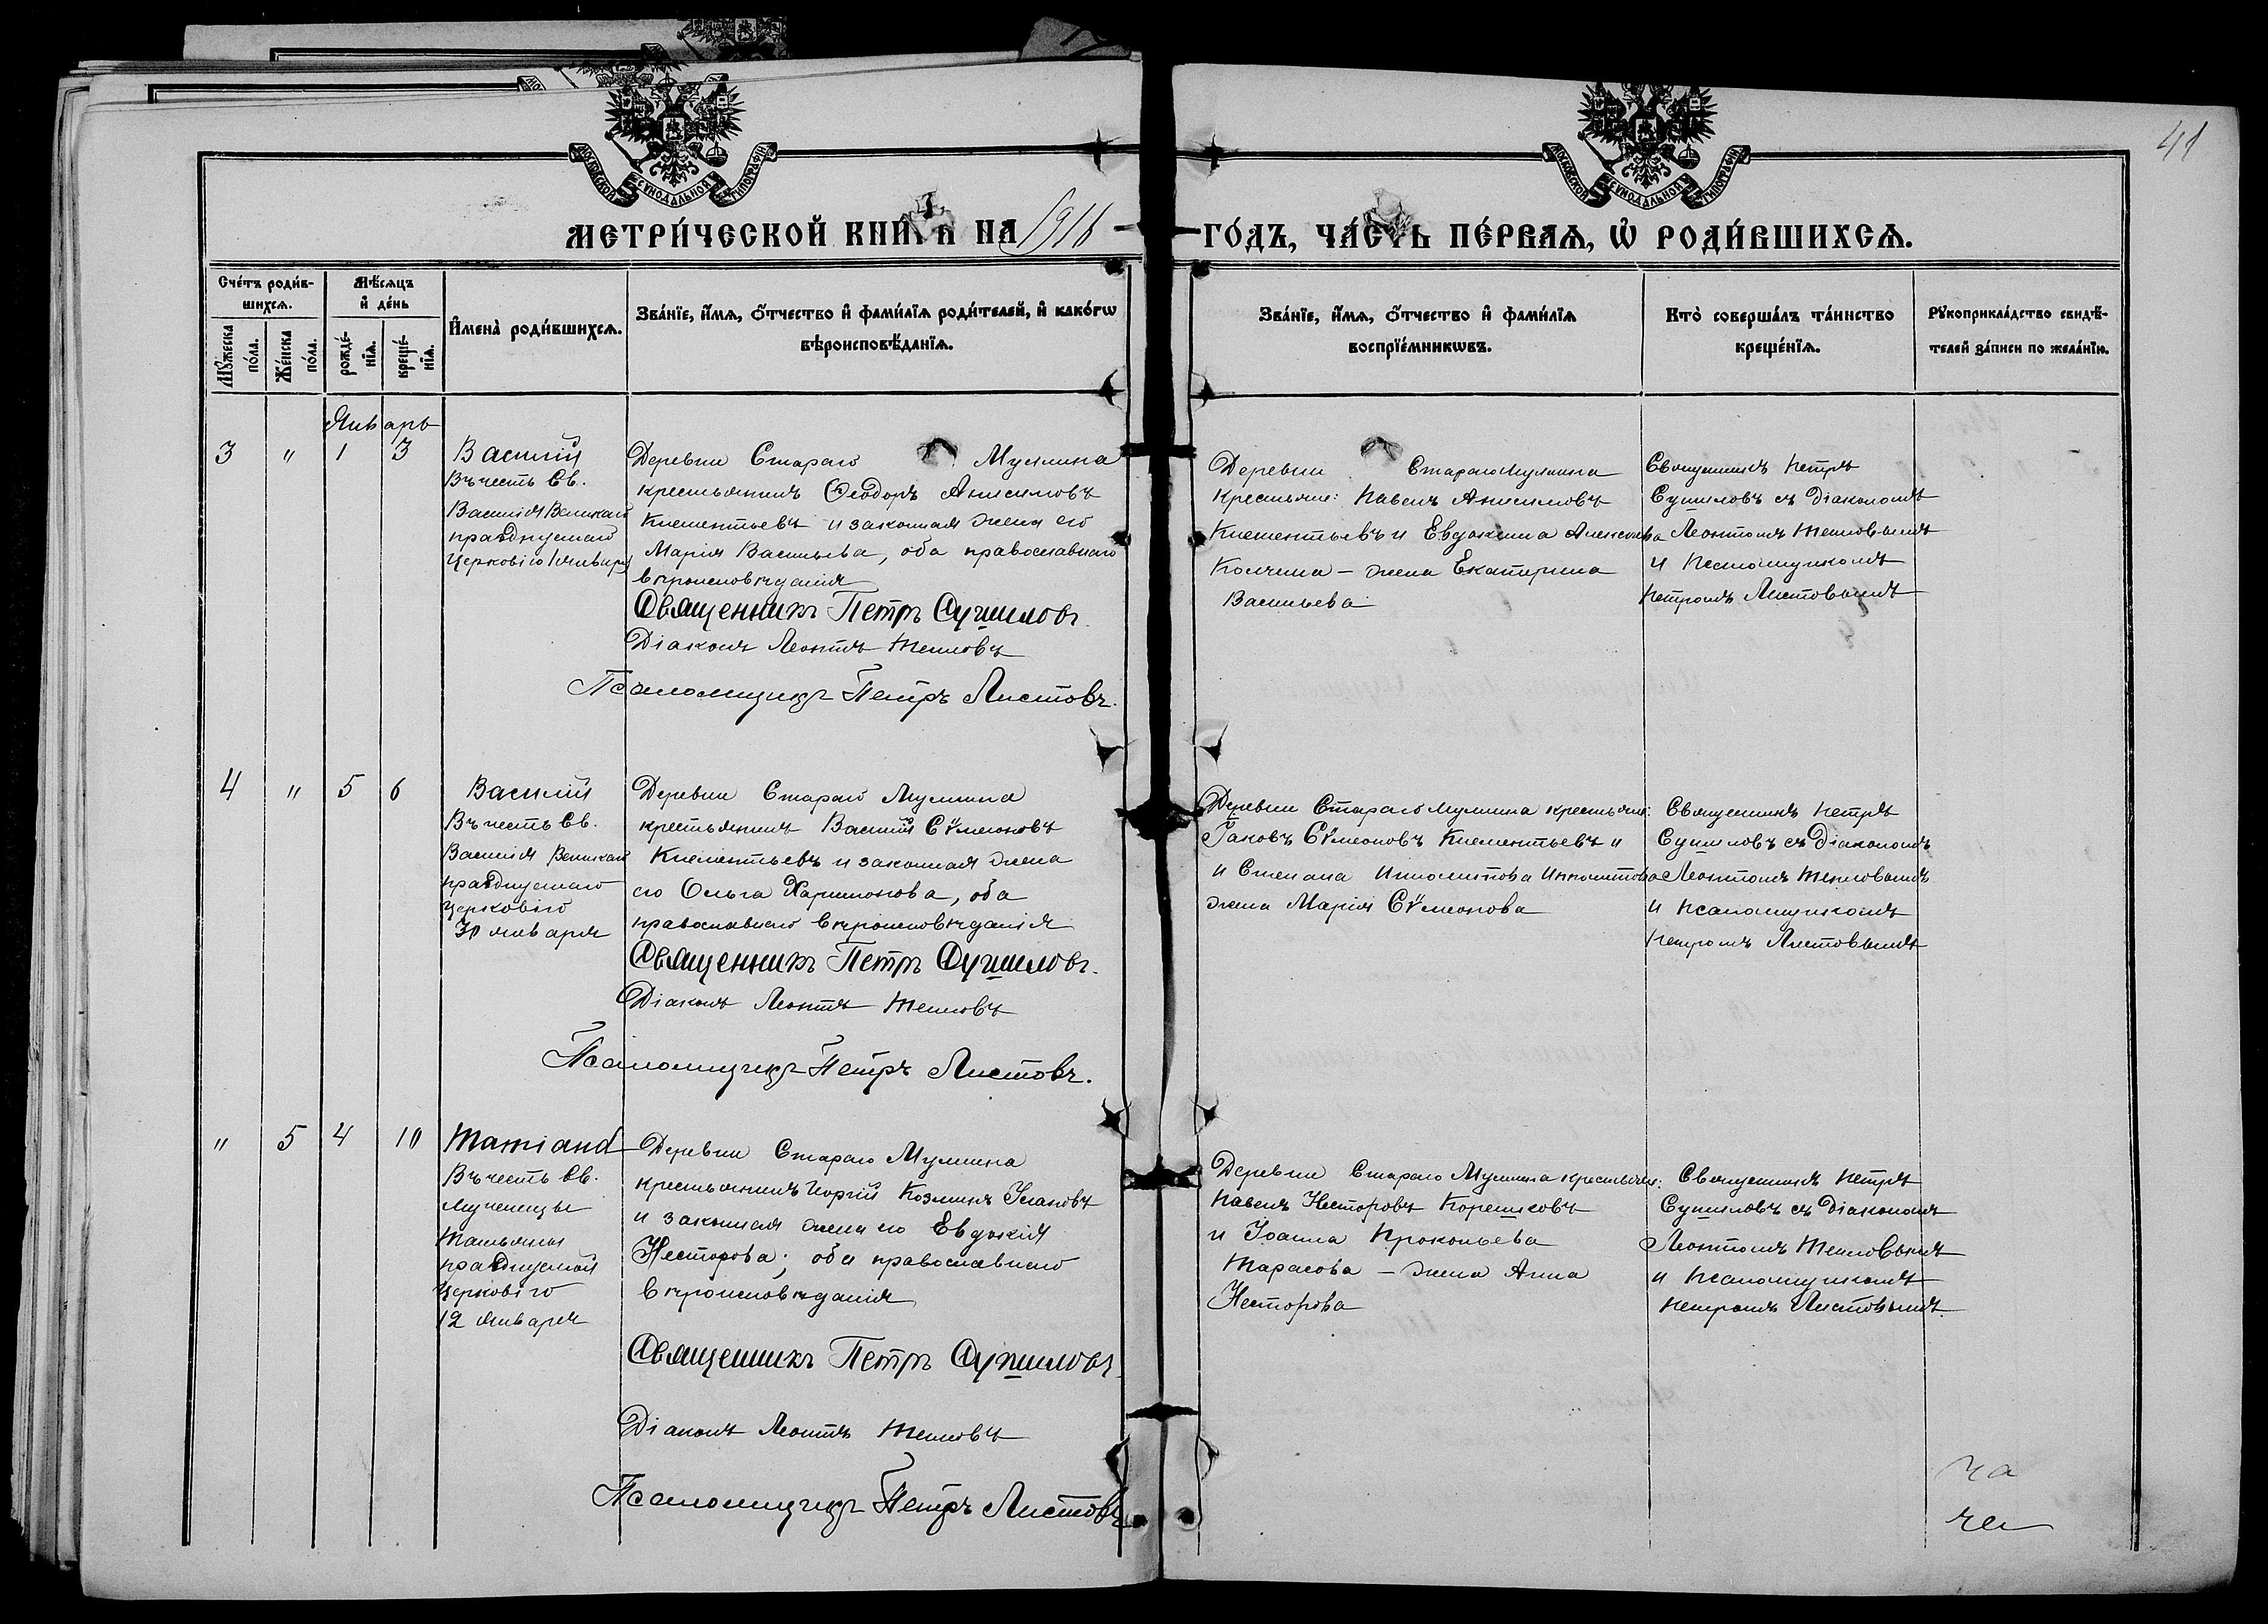 41
МОСКОВСКОЙ СѴНОДАЛЬНОЙ ТИПОГРАФІИ
МОСКОВСКОЙ СѴНОДАЛЬНОЙ ТИПОГРАФІИ
МЕТРИ́ЧЕСКОЙ КНИ́ГИ НА 1916
ГО́ДЪ, ЧА́СТЬ ПЕ́РВАѦ, Ѡ҆ РОДИ́ВШИХСѦ.
Сче́тъ роди́в-
шихсѧ.
Мꙋ́жеска по́ла.
Же́нска по́ла.
Мѣ́сѧцъ
и҆ де́нь
рожде́-
нїѧ.
креще́-
нїѧ.
И҆мена̀ роди́вшихсѧ.
Зва́нїе, и҆́мѧ, ѻ҆́тчество и҆ фами́лїѧ роди́телей, и҆ како́гѡ
вѣроисповѣ́данїѧ.
Зва́нїе, и҆́мѧ, ѻ҆́тчество и҆ фами́лїѧ
воспрїе́мникѡвъ.
Кто̀ соверша́лъ та́инство
креще́нїѧ.
Рꙋкоприкла́дство свидѣ́-
телей за́писи по жела́нїю.
Январь
3 " 1 3
Василій
Въ честь Св.
Василія Великаго
празднуемаго
Церковію 1 января
Деревни Стараго Муллина
крестьянинъ Ѳеодоръ Анисимовъ
Клементьевъ и законная жена его
Марія Васильева, оба православнаго
вѣроисповѣданія
Священникъ Петръ Сушиловъ.
Діаконъ Леонтій Тепловъ
Псаломщикъ Петръ Листовъ.
Деревни Стараго Муллина
крестьяне: Павелъ Анисимовъ
Клементьевъ и Евдокима Алексѣева
Колчина - жена Екатерина
Васильева
Священникъ Петръ
Сушиловъ съ Діакономъ
Леонтіемъ Тепловымъ
и Псаломщикомъ
Петромъ Листовымъ
4 " 5 6
Василій
Въ честь Св.
Василія Великаго
празднуемаго
Церковію
30 января
Деревни Стараго Муллина
крестьянинъ Василій Сѵмеоновъ
Клементьевъ и законная жена
его Ольга Харитонова, оба
православнаго вѣроисповѣданія
Священникъ Петръ Сушиловъ.
Діаконъ Леонтій Тепловъ
Псаломщикъ Петръ Листовъ.
Деревни Стараго Муллина крестьяне:
Іаковъ Сѵмеоновъ Клементьевъ и
и Степана Ипполитова Ипполитова
жена Марія Сѵмеонова
Священникъ Петръ
Сушиловъ съ Діакономъ
Леонтіемъ Тепловымъ
и Псаломщикомъ
Петромъ Листовымъ
" 5 4 10
Татіана
Въ честь Св.
мученицы
Татьяны
празднуемой
Церковію
12 января
Деревни Стараго Муллина
крестьянинъ Козминъ
и законная жена его Евдокія
Несторова; оба православнаго
вѣроисповѣданія
Священникъ Петръ Сушиловъ.
Діаконъ Леонтій Тепловъ
Псаломщикъ Петръ Листовъ
Деревни Стараго Муллина крестьяне:
Павелъ Несторовъ Корешковъ
и Іоанна Прокопьева
Тарасова - жена Анна
Несторова
Священникъ Петръ
Сушиловъ съ Діакономъ
Леонтіемъ Тепловымъ
и Псаломщикомъ
Петромъ Листовымъ.